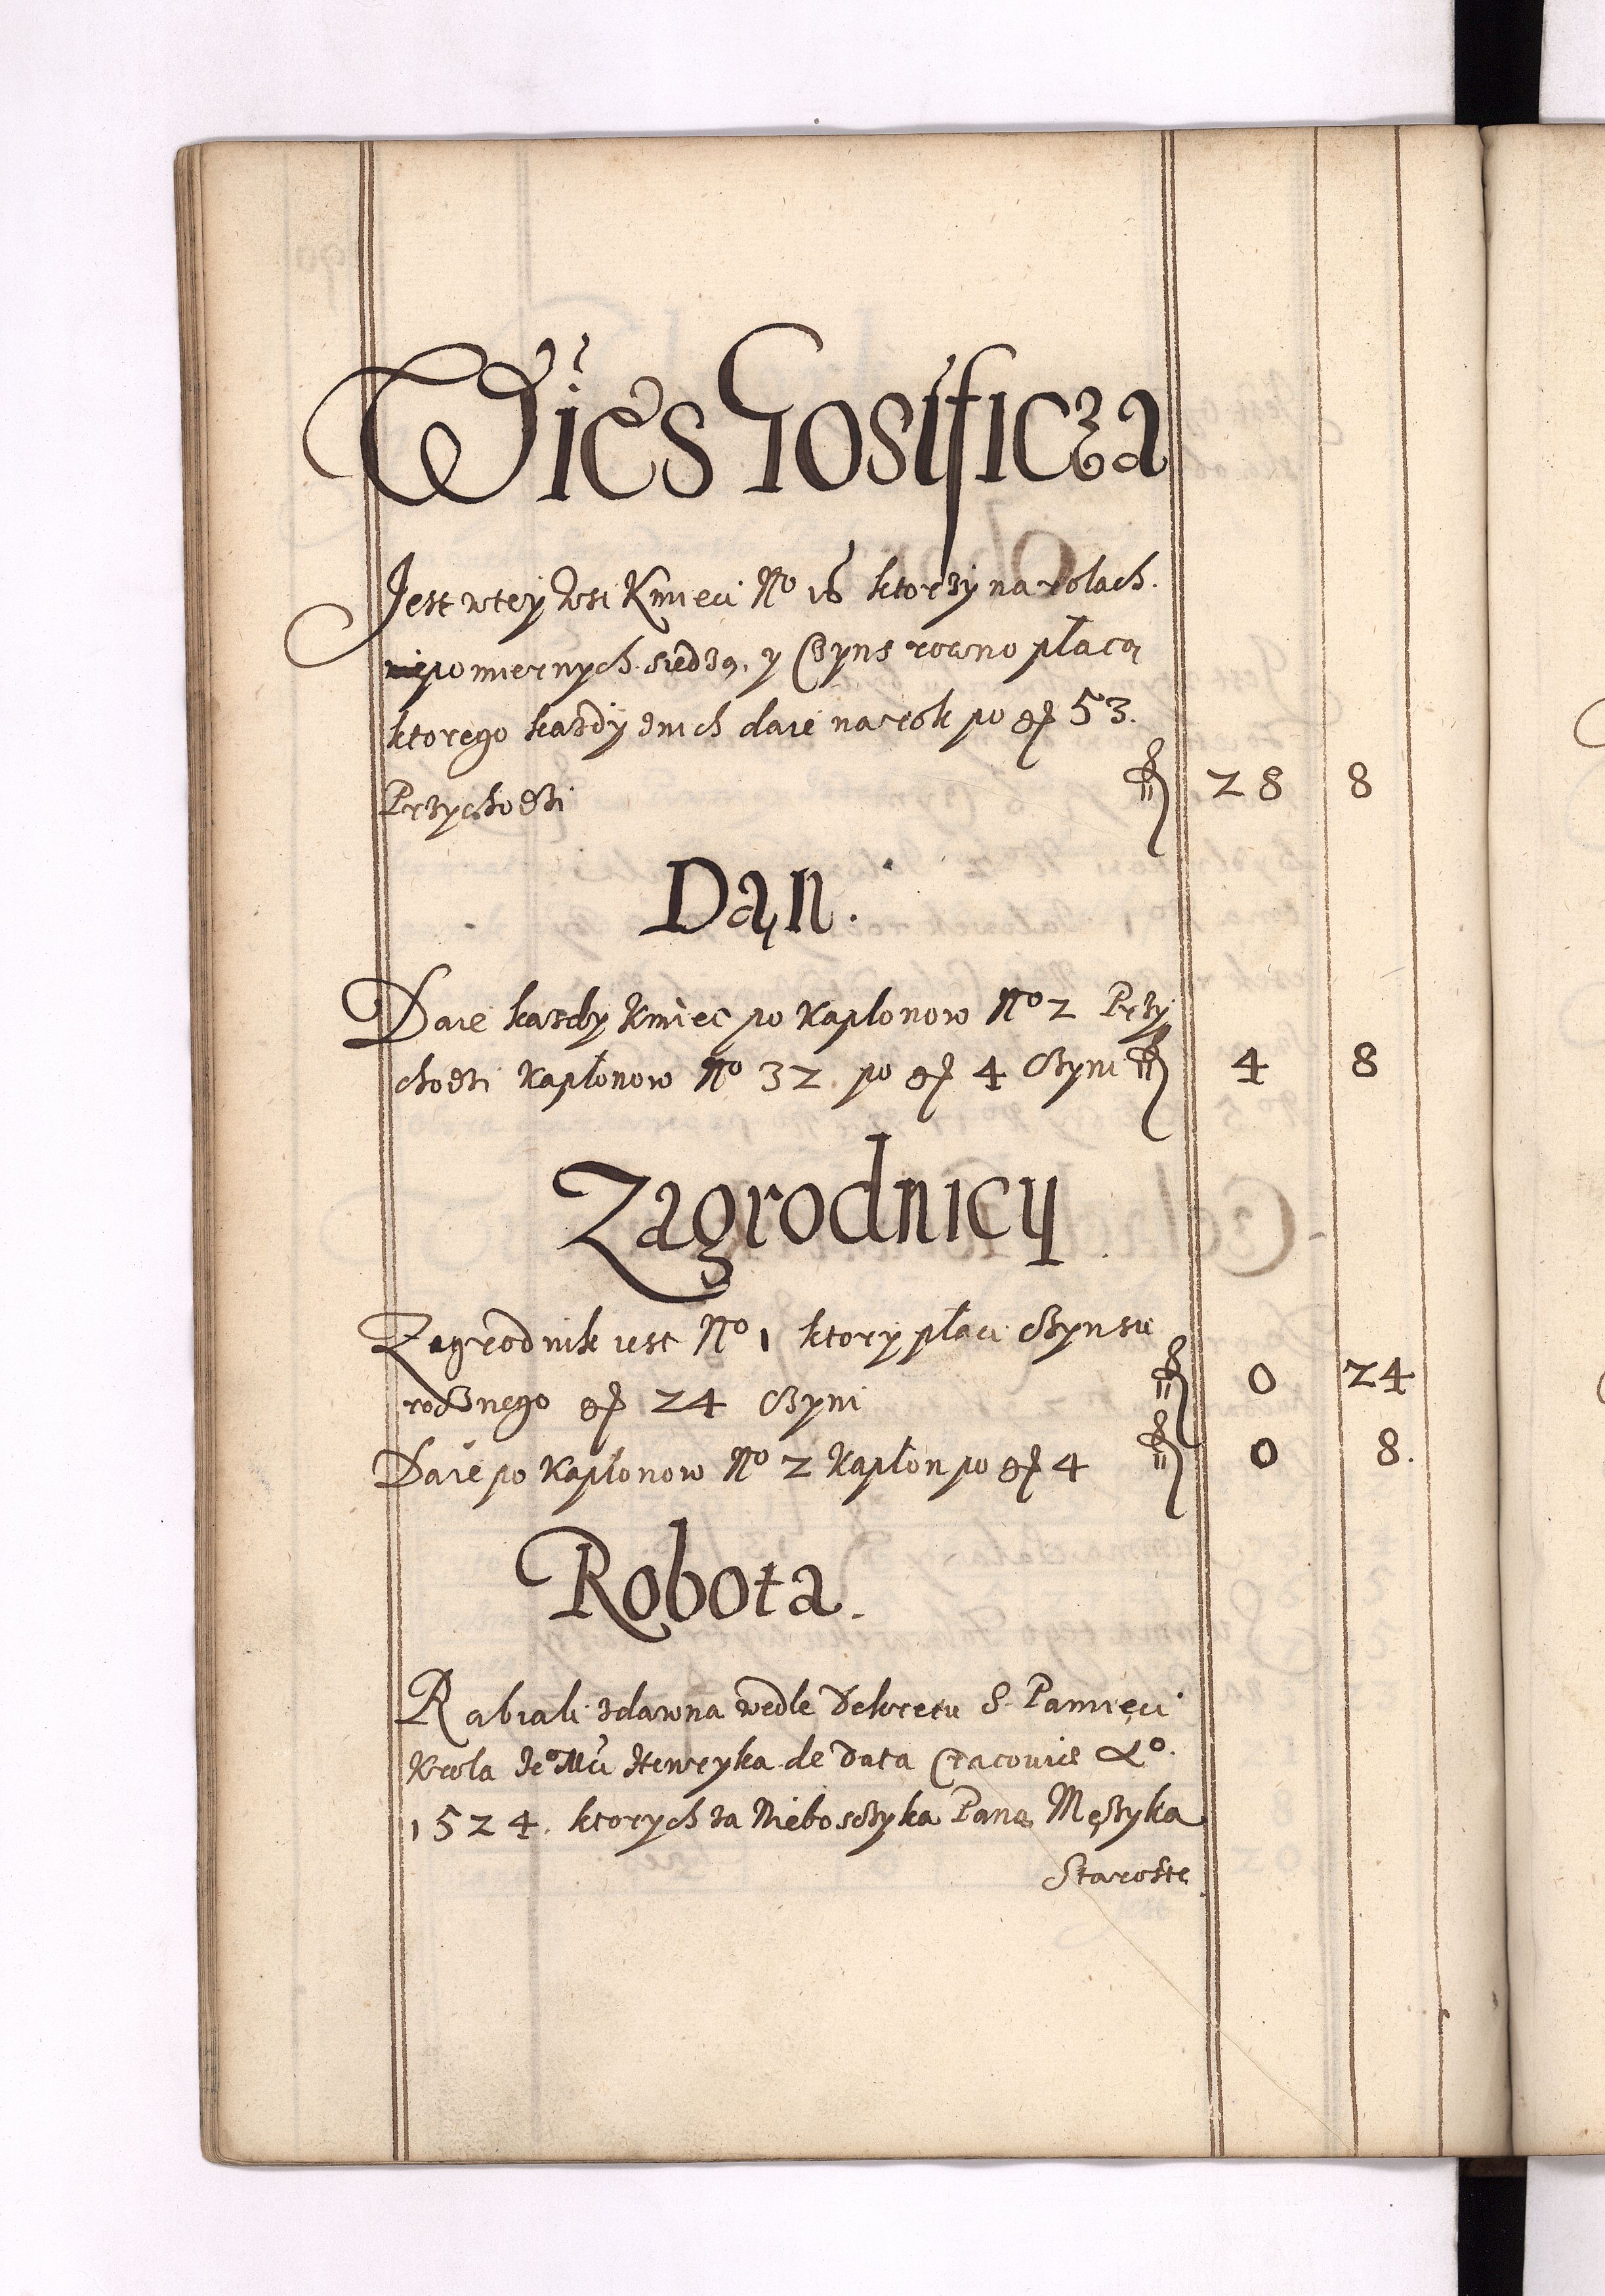 Wies Gosificza
Jest wtey Wsi Kmieci No 16 ktorzy na rolach
niepomiernych siedzą, y Czyns rowno płacą
ktorego każdy znich daie na rok po gr 53.
Przychodzi fl 28 8
Dąn.
Daie każdy kmiec po kapłonow No 2 Przy
chodzi kapłonow No 32. po gr 4 Czyni fl 4 8
Zagrodnicy
Zagrodnik iest No 1 ktory płaci Czynsu
rocznego gr 24 Czyni fl 0 24
Daie po kapłonow No 2 kapłon po gr 4 fl 0 8.
Robota.
Rabiali zdawna wedle Dekretu S. Pamięci
Krola Je° Mci Henryka de Data Cracouie Ao.
1524. ktorych za Nieboszczyka Pana Mężyka
Staroste